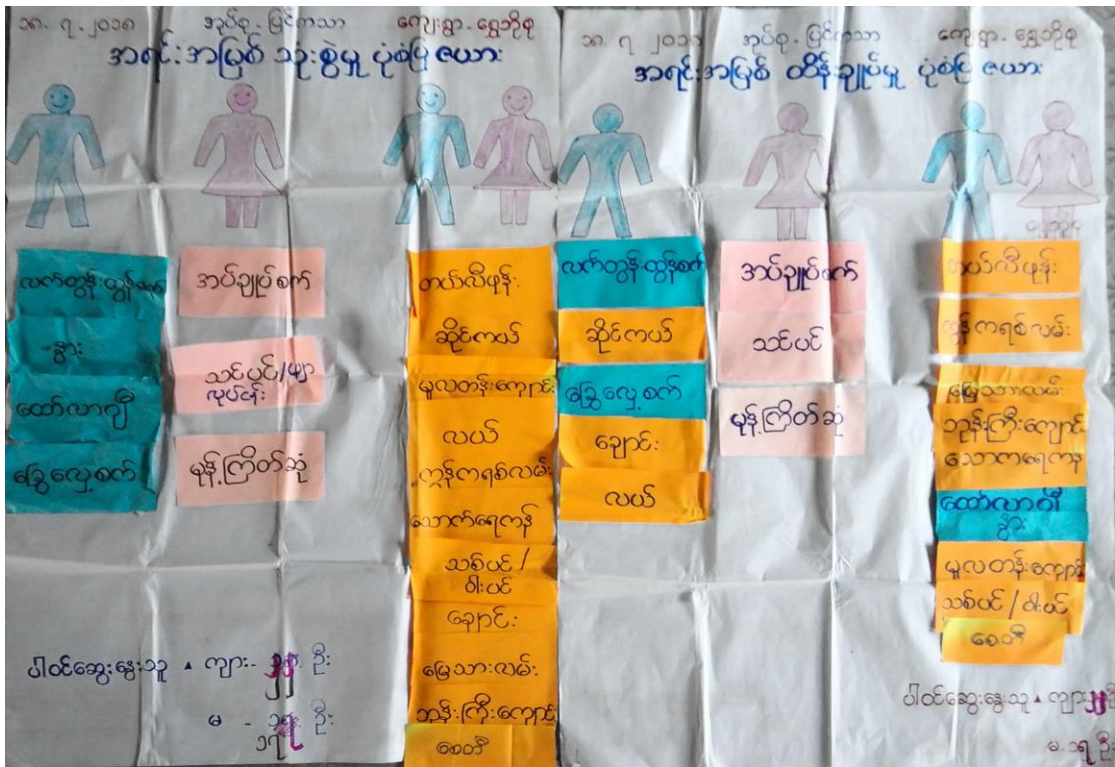 ၁၈.၇.၂၀၁၈ အုပ်စု.မြင်ကသာ ကျေးရွာ.ရွှေဘိုစု
အရင်းအမြစ် သုံးစွဲမှု ပုံစံပြ ဇယား
လက်တွန်းထွန်စက်
-နွား
ထော်လာဂျီ
ခြွေလှေ့စက်
အပ်ချုပ်စက်
သင်ပင်/ဖျာ
လုပ်ငန်း
မုန့်ကြိတ်ဆုံ
တယ်လီဖုန်း
ဆိုင်ကယ်
မူလတန်းကျောင်း
လယ်
ကွန်ကရစ်လမ်း
သောက်ရေကန်
သစ်ပင်/
ဝါးပင်
ချောင်း
မြေသားလမ်း
ဘုန်းကြီးကျောင်း
စေတီ
ပါဝင်ဆွေးနွေးသူ ▲ ကျား- ဦး
မ - ၁၇ ဦး
၁၈.၇.၂၀၁၈ အုပ်စု.မြင်ကသာ ကျေးရွာ.ရွှေဘိုစု
အရင်းအမြစ် ထိန်းချုပ်မှု ပုံစံပြ ဇယား
လက်တွန်းထွန်စက်
ဆိုင်ကယ်
ခြွေလှေ့စက်
ချောင်း
လယ်
အပ်ချုပ်စက်
သင်ပင်
မုန့်ကြိတ်ဆုံ
တယ်လီဖုန်း
ကွန်ကရစ်လမ်း
မြေသားလမ်း
ဘုန်းကြီးကျောင်း
သောကရေကန်
ထော်လာဂျီ
နွား
မူလတန်းကျောင်း
သစ်ပင်/ဝါးပင်
စေတီ
ပါဝင်ဆွေးနွေးသူ ▲ ကျား
မ.၁၇ ဦး